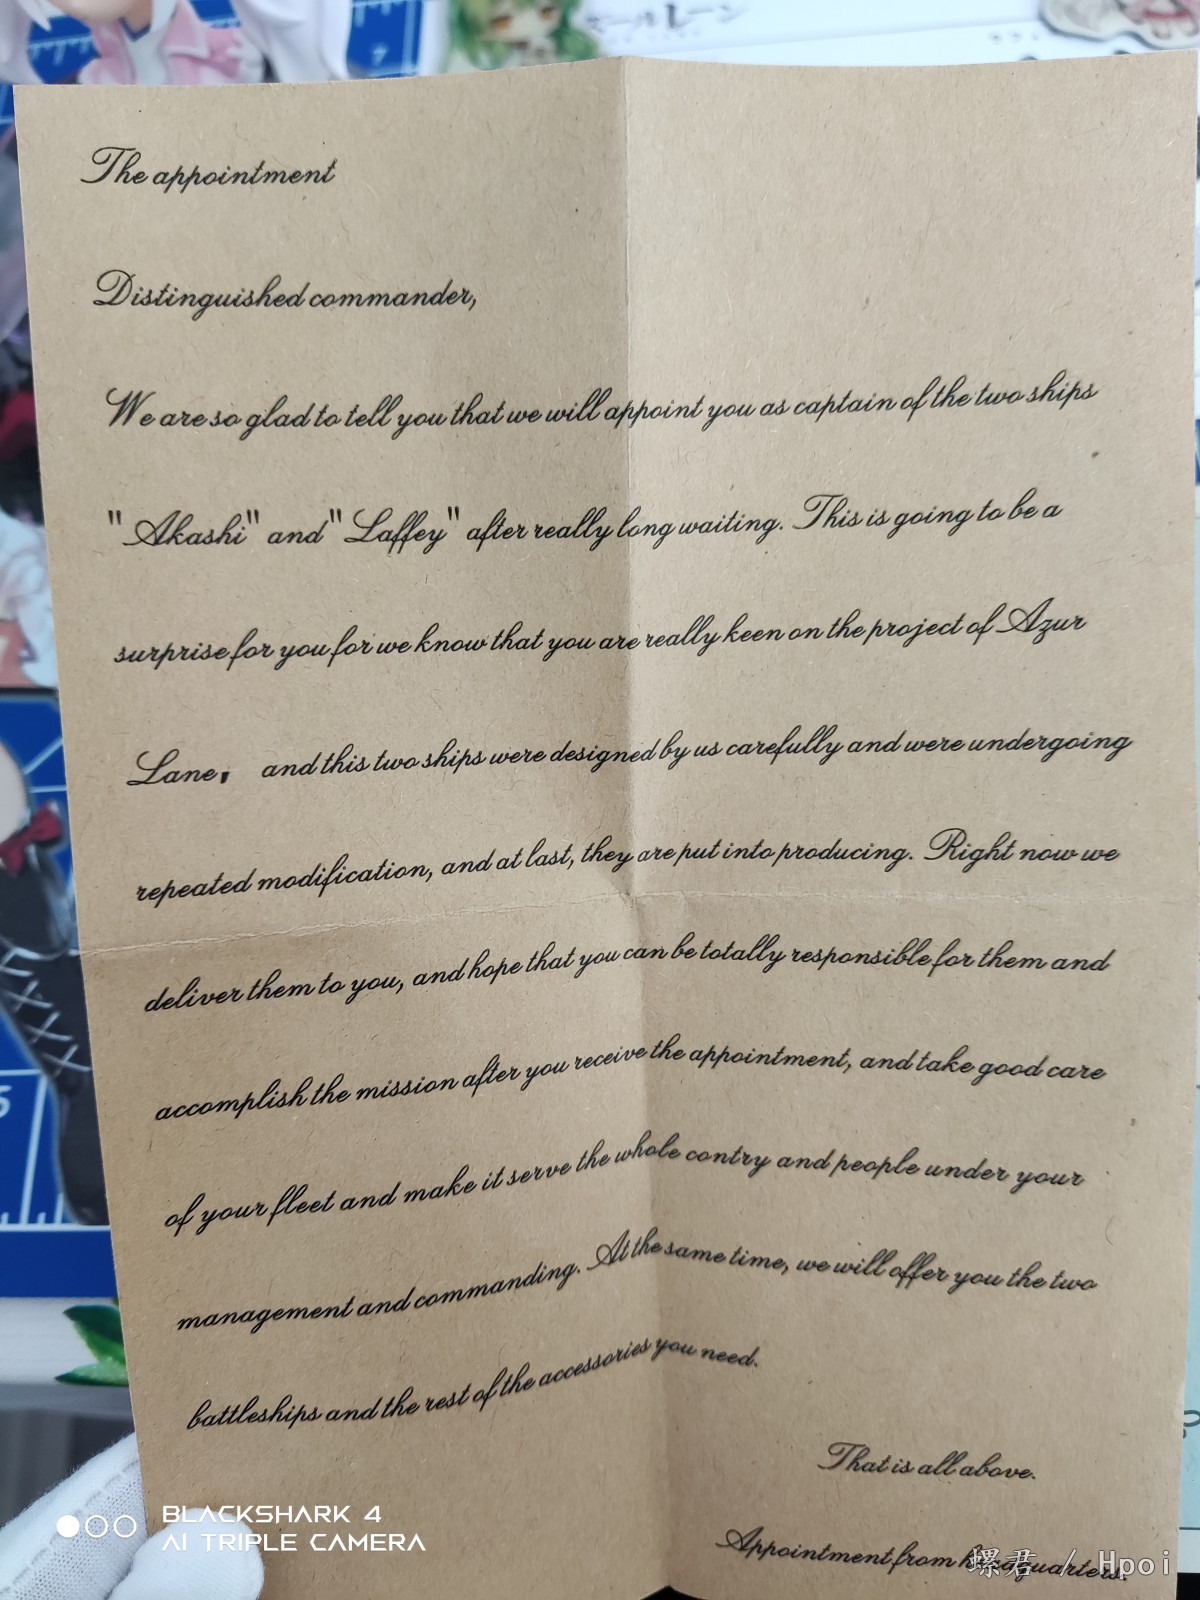 ールレーン
The appointment
Distinguished commander,
We are so glad to tell you that we will appoint you as captain of the two ships
"Akashi" and "Laffey" after really long waiting. This is going to be a
surprise for you for we know that you are really keen on the project of Azur
Lane, and this two ships were designed by us carefully and were undergoing
repeated modification, and at last, they are put into producing. Right now we
deliver them to you, and hope that you can be totally responsible for them and
accomplish the mission after you receive the appointment, and take good care
of your fleet and make it serve the whole contry and people under your
management and commanding. At the same time, we will offer you the two
battleships and the rest of the accessories you need.
That is all above.
Appointment from headquarters.
BLACKSHARK 4
AI TRIPLE CAMERA
螺君 / Hpoi